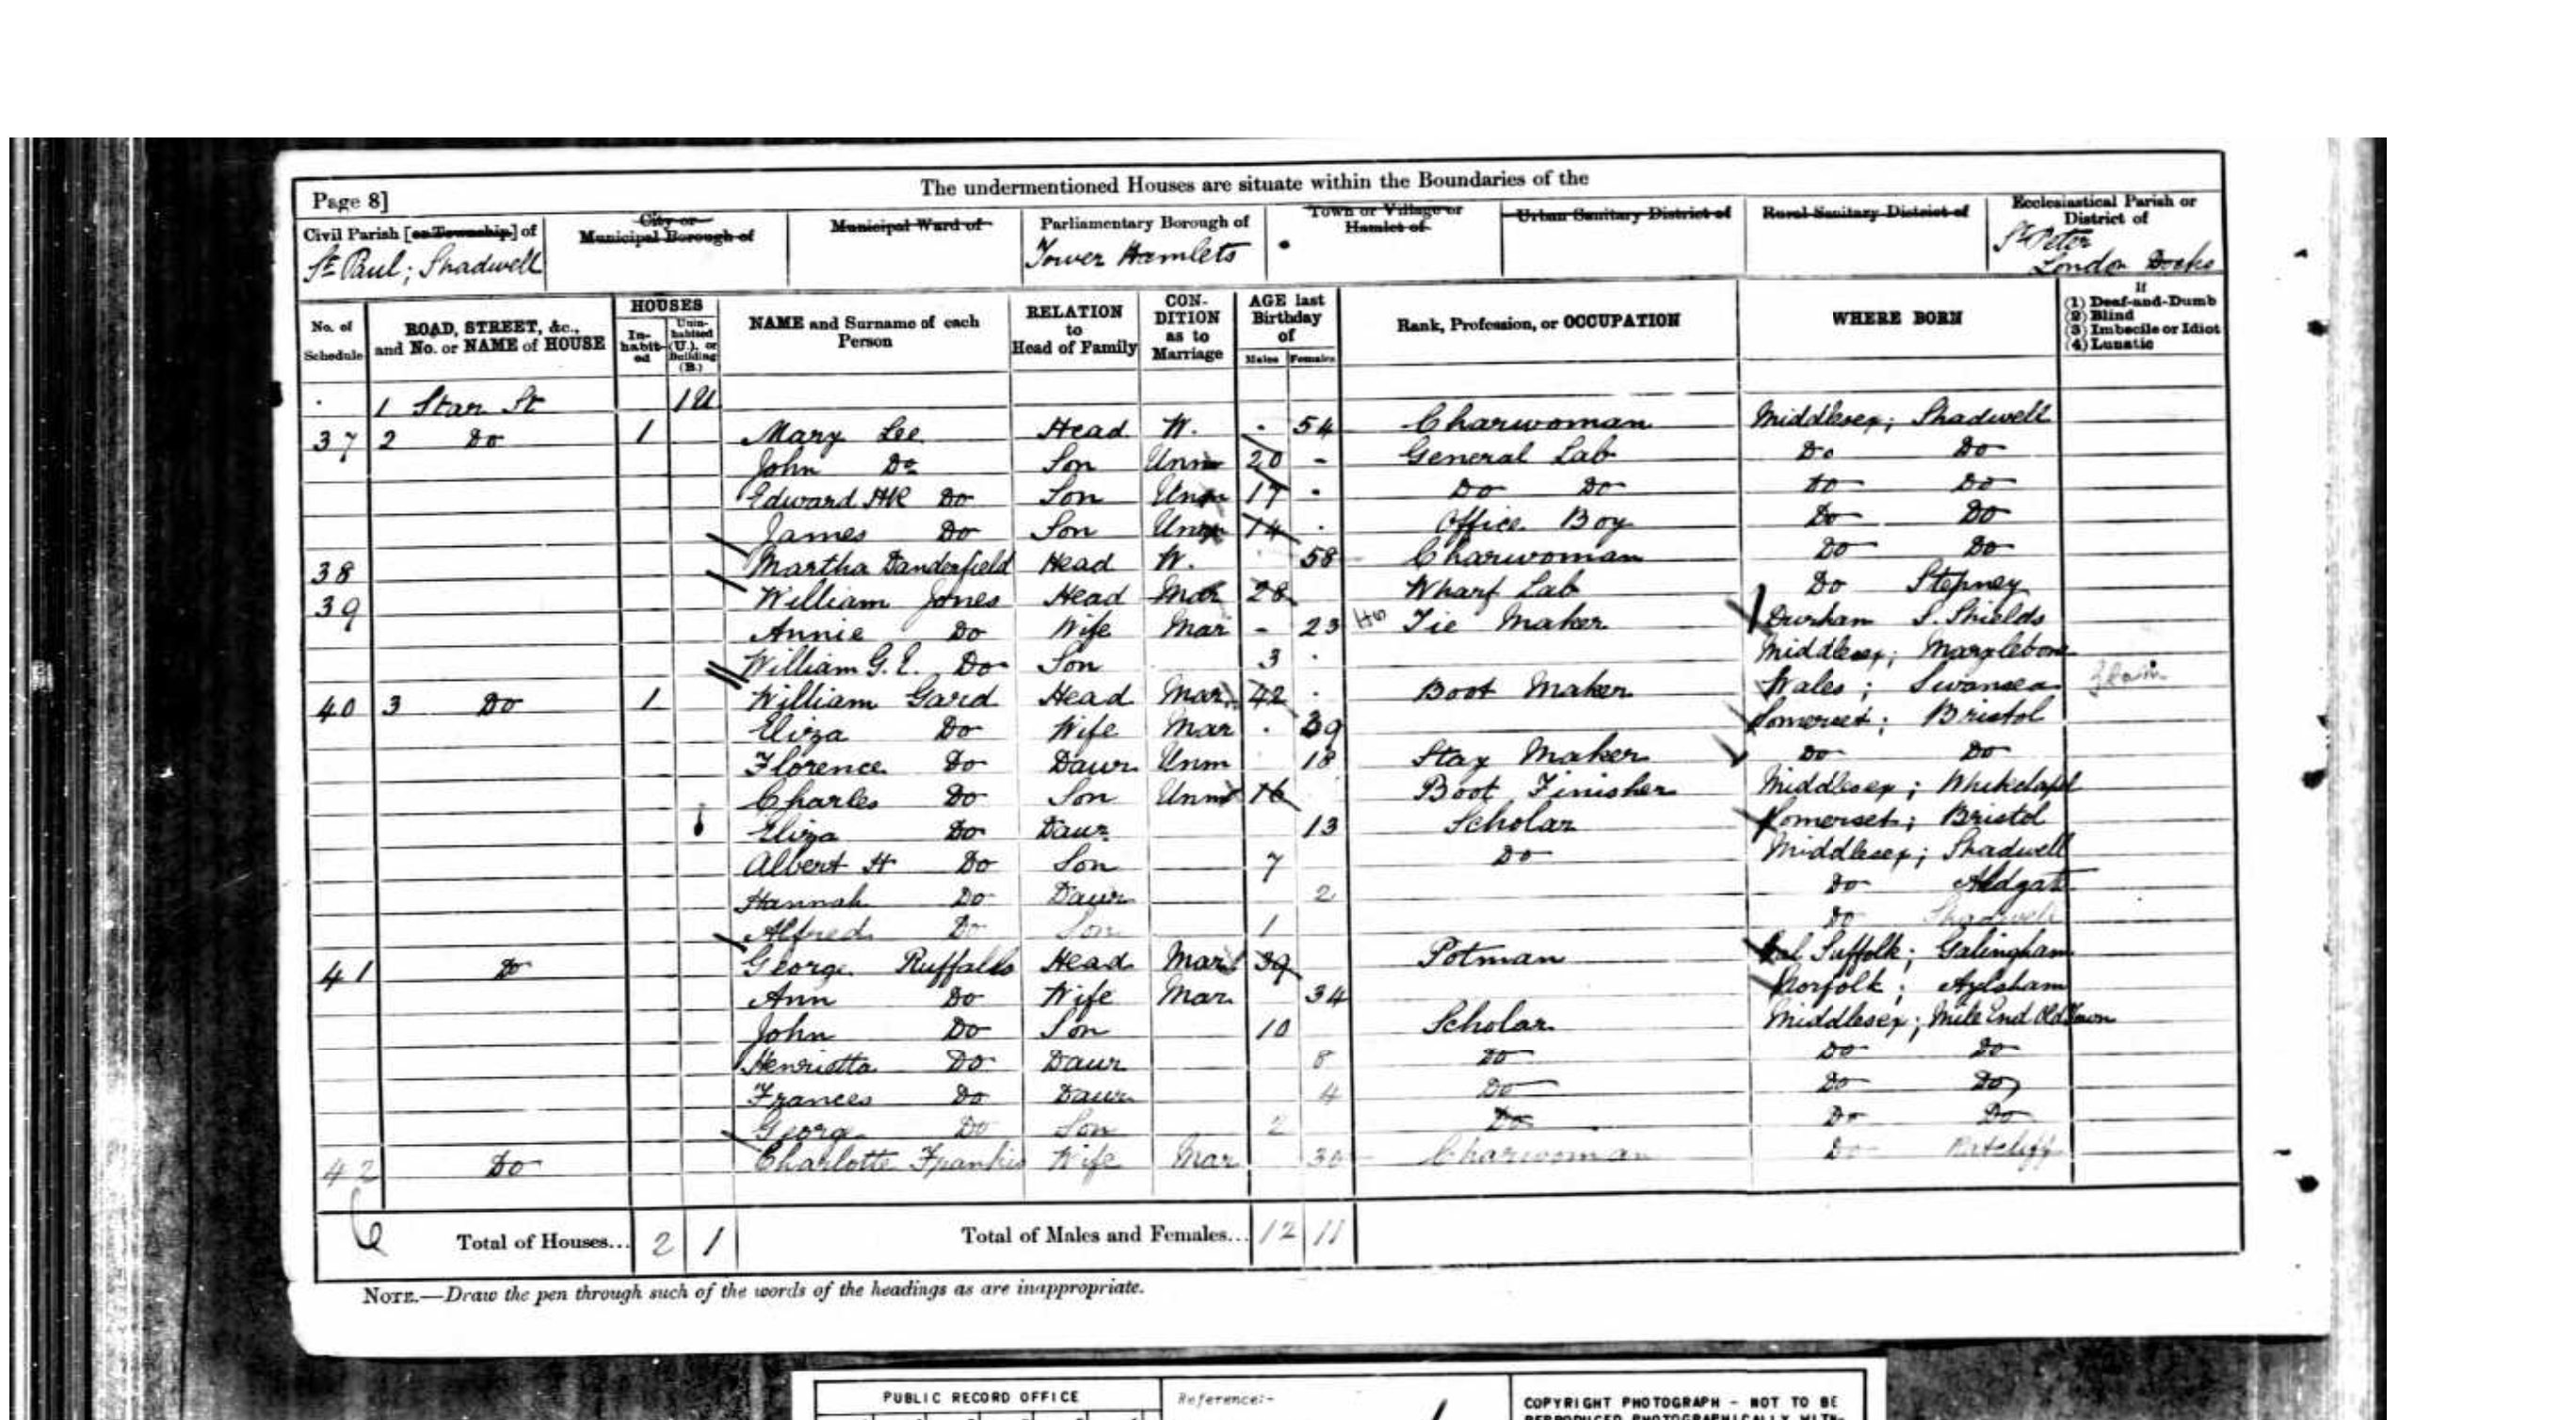 The undermentioned Houses are situate within the Boundaries of the
Page 8]
Civil Parish [or Township] of
St Paul; Shadwell
City or
Municipal Borough of
Municipal Ward of
Parliamentary Borough of
Tower Hamlets
Town or Village or
Hamlet of
Urban Sanitary District of
Rural Sanitary District of
Ecclesiastical Parish or
District of
St Peter
London Docks
No. of
Schedule
ROAD, STREET, &c.,
and No. or NAME of HOUSE
HOUSES
In-
habit-
ed
Unin-
habited
(U.), or
Building
(B.)
NAME and Surname of each
Person
RELATION
to
Head of Family
CON-
DITION
as to
Marriage
AGE last
Birthday
of
Males Females
Rank, Profession, or OCCUPATION
WHERE BORN
If
(1) Deaf-and-Dumb
(2) Blind
(3) Imbecile or Idiot
(4) Lunatic
1 Star St 1 U
37 2 Do 1 Mary Lee Head W. 54 Charwoman Middlesex; Shadwell
John Do Son Unm 20 - General Lab Do Do
Edward Do Son Unm 17 Do Do Do Do
James Do Son Unm 14 Office Boy Do Do
38 Martha Danderfield Head W. 58 Charwoman Do Do
39 William Jones Head Mar 28 Wharf Lab Do Stepney
Annie Do Wife Mar - 23 Tie Maker Durham S. Shields
William G. E. Do Son 3 Middlesex; Marylebone
40 3 Do 1 William Gard Head Mar 42 Boot Maker Wales; Swansea
Eliza Do Wife Mar 39 Somerset; Bristol
Florence Do Daur Unm 18 Stay Maker Do Do
Charles Do Son Unm 16 Boot Finisher Middlesex; Whitechapel
Eliza Do Daur 13 Scholar Somerset; Bristol
Albert H Do Son 7 Do Middlesex; Shadwell
Hannah Do Daur 2 Do Aldgate
Alfred Do Son 1 Do Shadwell
41 Do George Ruffalls Head Mar 39 Potman Suffolk; Galingham
Ann Do Wife Mar 34 Norfolk; Aylsham
John Do Son 10 Scholar Middlesex; Mile End Old Town
Henrietta Do Daur 8 Do Do Do
Frances Do Daur 4 Do Do Do
George Do Son 2 Do Do Do
42 Do Charlotte Wife Mar 30 Charwoman Do Ratcliff
6 Total of Houses... 2 1 Total of Males and Females... 12 11
NOTE.—Draw the pen through such of the words of the headings as are inappropriate.
PUBLIC RECORD OFFICE
Reference:-
COPYRIGHT PHOTOGRAPH - NOT TO BE
REPRODUCED PHOTOGRAPHICALLY WITH-